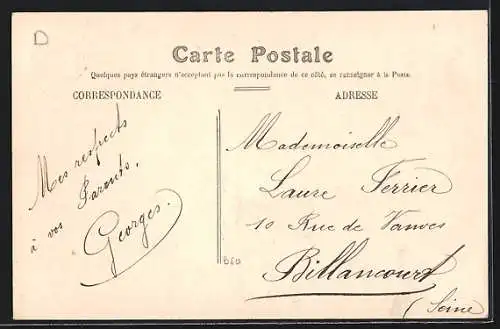 D
Carte Postale
Quelques pays étrangers n'acceptant pas la correspondance de ce côté, se renseigner à la Poste.
CORRESPONDANCE
ADRESSE
Mes respects
à vos Parents.
Georges.
Mademoiselle
Laure Ferrier
10 Rue de Vanves
Billancourt
(Seine